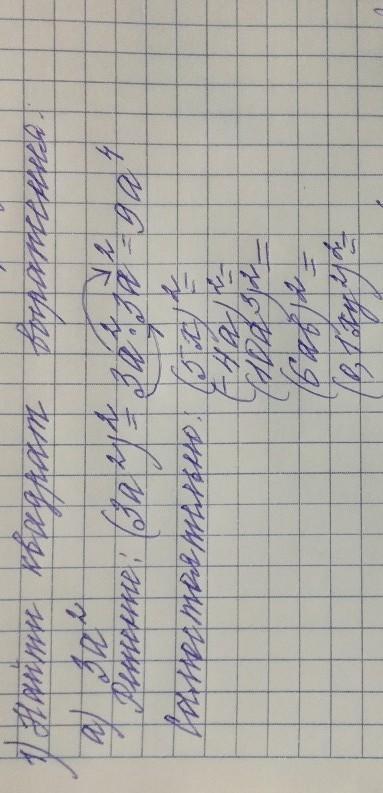 1) Найти квадрат выражения.
а) 3a²
Решение: (3a²)² = 3a² · 3a² = 9a⁴
Самостоятельно: (5x)² =
(-4a)² =
(10a³)² =
(6ab)² =
(0,1xy²)² =